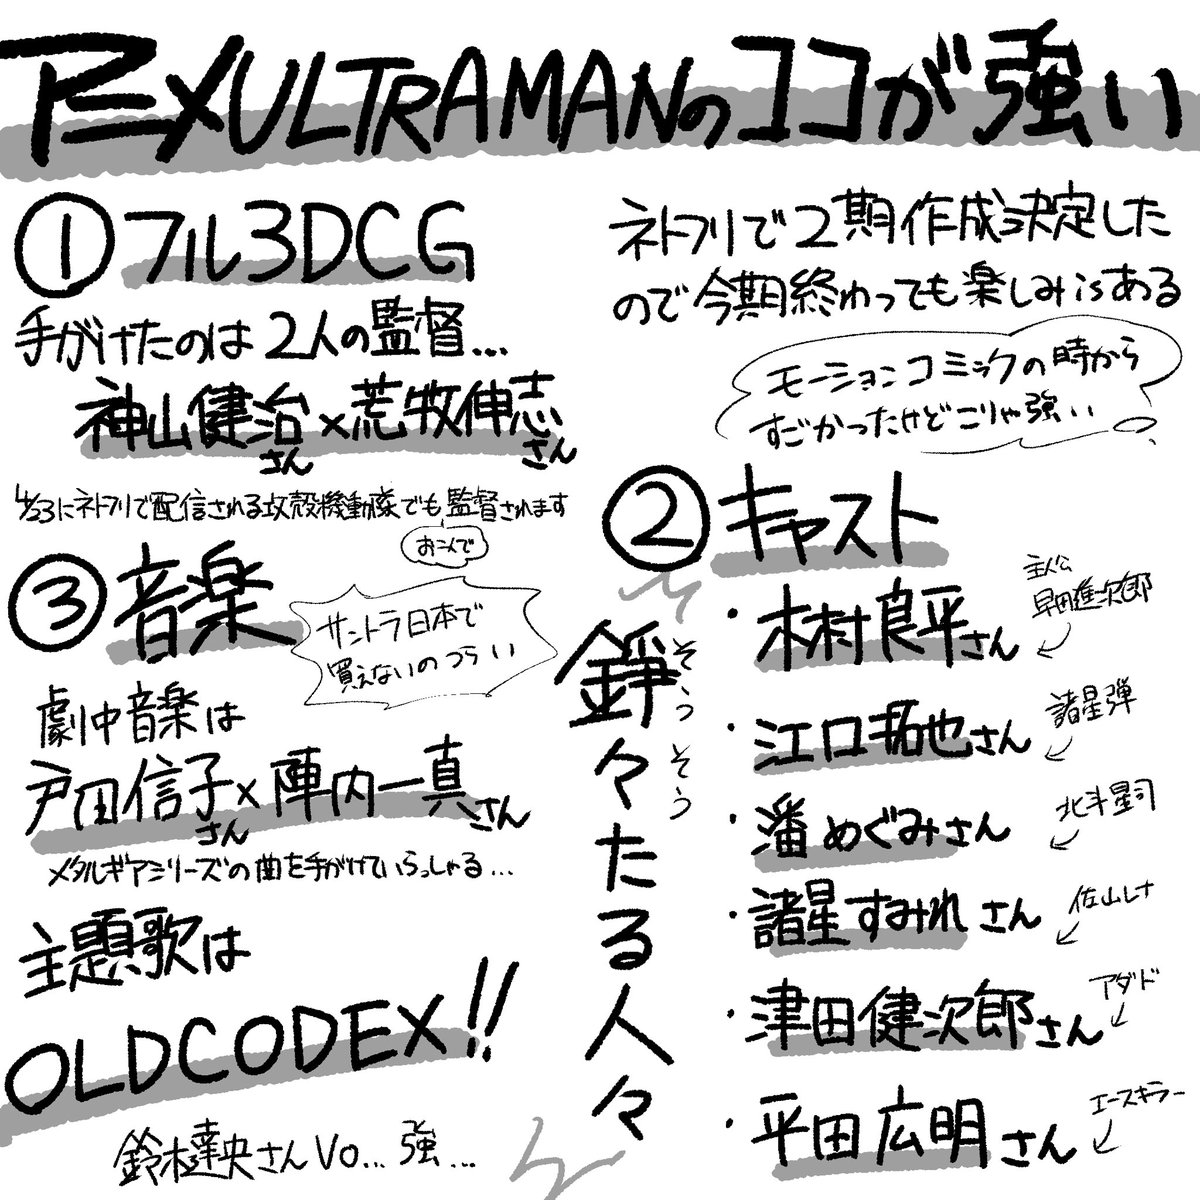 アニメULTRAMANのココが強い
①フル3DCG
手がけたのは2人の監督...
神山健治さん×荒牧伸志さん
4/23にネトフリで配信される攻殻機動隊でも監督されます
お二人で
ネトフリで2期作成決定した
ので今期終わっても楽しみisある
モーションコミックの時から
すごかったけどこりゃ強い
②キャスト
錚々たる人々
そうそう
・木村良平さん
主人公
早田進次郎
・江口拓也さん
諸星弾
・潘めぐみさん
北斗星司
・諸星すみれさん
佐山レナ
・津田健次郎さん
アダド
・平田広明さん
エースキラー
③音楽
サントラ日本で
買えないのつらい
劇中音楽は
戸田信子さん×陣内一真さん
メタルギアシリーズの曲を手がけていらっしゃる...
主題歌は
OLDCODEX!!
鈴木達央さんVo...強...